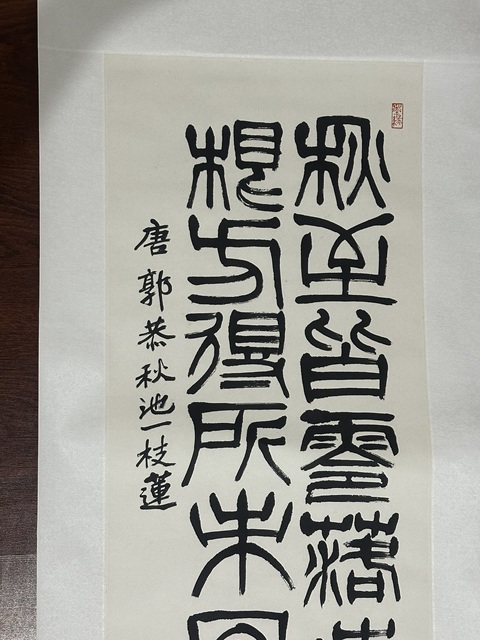 秋至皆零落
根方得所未
唐郭恭秋池一枝蓮